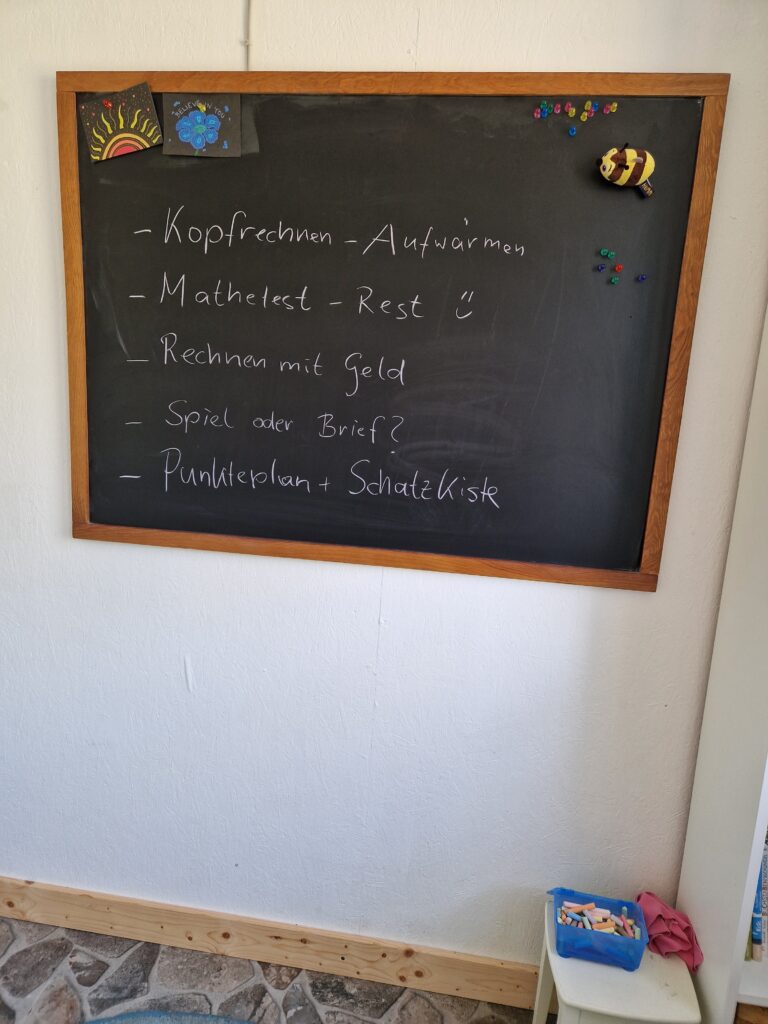 BELIEVE IN YOU
- Kopfrechnen - Aufwärmen
- Mathetest - Rest :)
- Rechnen mit Geld
- Spiel oder Brief?
- Punkteplan + Schatzkiste